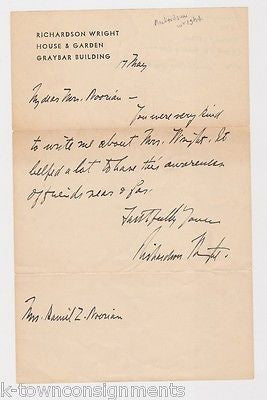 Richardson
Wright
RICHARDSON WRIGHT
HOUSE & GARDEN
GRAYBAR BUILDING
7 May
My dear Mrs. Noorian —
You were very kind
to write me about Mrs. Wright. It
helped a lot to have this awareness
of friends near & far.
Faithfully Yours
Richardson Wright.
Mrs. Daniel Z. Noorian
k-townconsignments